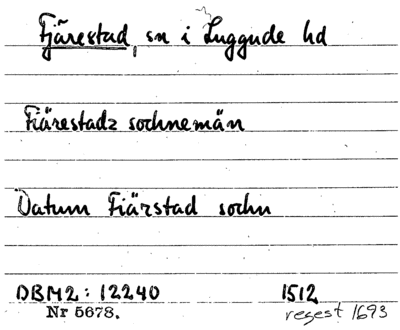 Fjärestad, sn i Luggude hd
Fiärestadz sochnemän
Datum Fiärstad sochn
DBM2: 12240 1512
Nr 5678. regest 1693